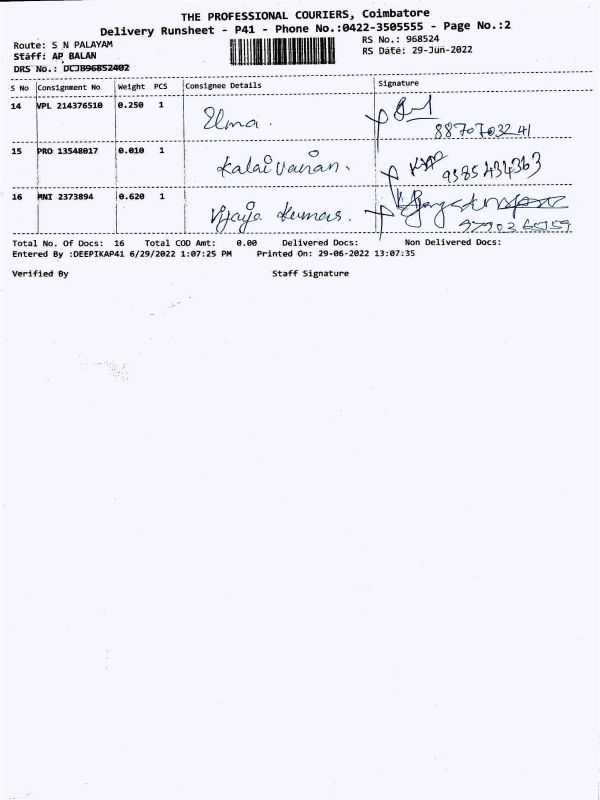 THE PROFESSIONAL COURIERS, Coimbatore
Delivery Runsheet - P41 - Phone No.:0422-3505555 - Page No.:2
Route: S N PALAYAM
RS No.: 968524
Staff: AP BALAN
RS Date: 29-Jun-2022
DRS No.: DCJB96852402
S No Consignment No Weight PCS Consignee Details Signature
14 VPL 214376510 0.250 1 Elma.
8870703241
15 PRO 13548017 0.010 1 Kalaivanan.
9585434363
16 MNI 2373894 0.620 1 Vijaya Kumar.
Total No. Of Docs: 16 Total COD Amt: 0.00 Delivered Docs: Non Delivered Docs:
Entered By :DEEPIKAP41 6/29/2022 1:07:25 PM Printed On: 29-06-2022 13:07:35
Verified By Staff Signature